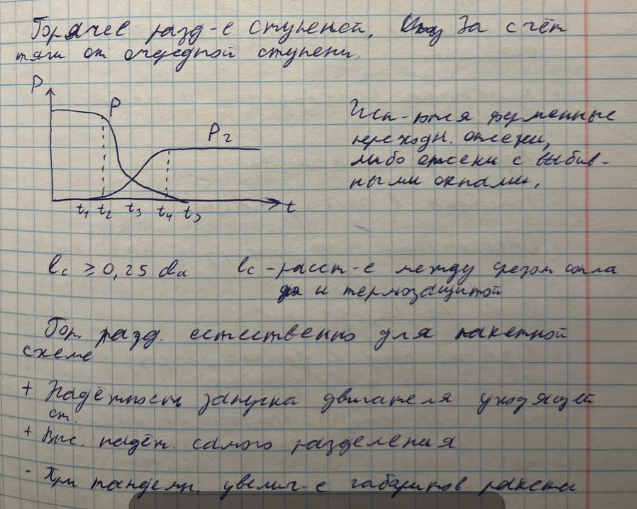 Горячее разд-е ступеней, За счёт
тяги от очередной ступени.
P
P
P₂
t₁ t₂ t₃ t₄ t₅
t
Исп-ются ферменные
переходн. отсеки,
либо отсеки с выбив-
ными окнами.
lc ≥ 0,25 da
lc - расст-е между срезом сопла
и термозащитой
Гор. разд. естественно для пакетной
схеме
+ Надёжность запуска двигателя уходящей
ст.
+ Выс. надёж. самого разделения
- При тандемн. увелич-е габаритов ракеты